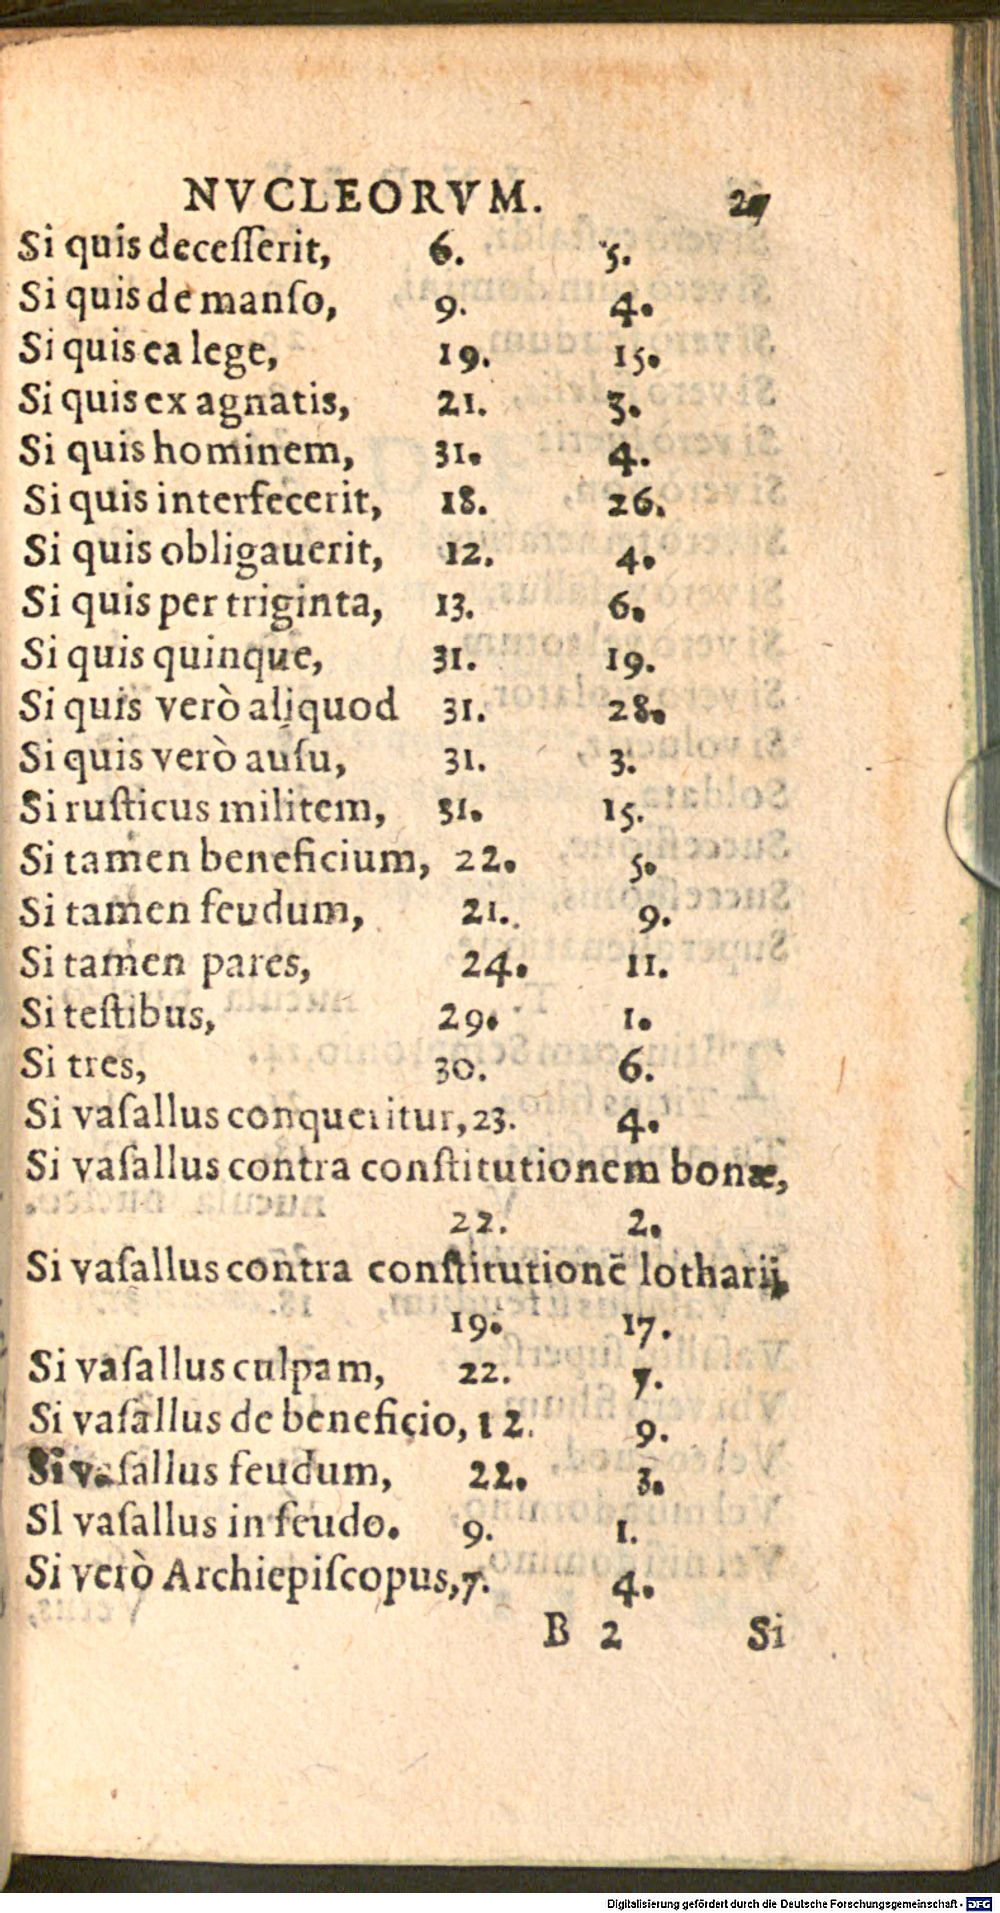 NVCLEORVM.
Si quis deceſſerit, 6. 5.
Si quis de manſo, 9. 4.
Si quis ea lege, 19. 15.
Si quis ex agnatis, 21. 3.
Si quis hominem, 31. 4.
Si quis interfecerit, 18. 26.
Si quis obligauerit, 12. 4.
Si quis per triginta, 13. 6.
Si quis quinque, 31. 19.
Si quis verò aliquod 31. 28.
Si quis verò auſu, 31. 3.
Si ruſticus militem, 31. 15.
Si tamen beneficium, 22. 5.
Si tamen feudum, 21. 9.
Si tamen pares, 24. 11.
Si teſtibus, 29. 1.
Si tres, 30. 6.
Si vaſallus conqueritur, 23. 4.
Si vaſallus contra conſtitutionem bonæ,
22. 2.
Si vaſallus contra conſtitutionē lotharij,
19. 17.
Si vaſallus culpam, 22. 7.
Si vaſallus de beneficio, 12. 9.
Si vaſallus feudum, 22. 3.
Sl vaſallus in feudo. 9. 1.
Si verò Archiepiſcopus, 7. 4.
B 2 Si
Digitalisierung gefördert durch die Deutsche Forschungsgemeinschaft - DFG